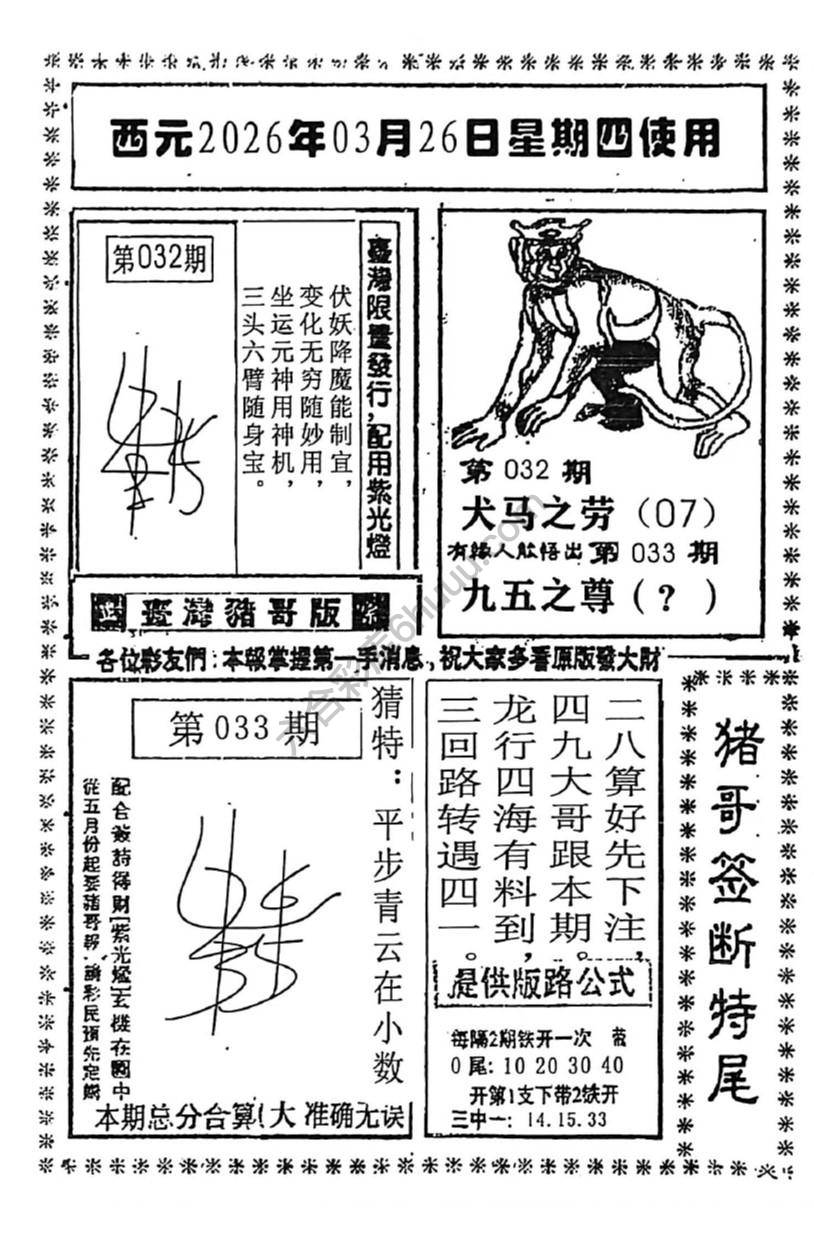 西元2026年03月26日星期四使用
第032期
臺灣限量發行,配用紫光燈
伏妖降魔能制宜,
变化无穷随妙用,
坐运元神用神机,
三头六臂随身宝。
臺灣豬哥版
第 032 期
犬马之劳(07)
有緣人能悟出 第 033 期
九五之尊(?)
各位彩友們:本報掌握第一手消息,祝大家多看原版發大財
第 033 期
猜特:平步青云在小数
配合簽詩得財[紫光燈]玄機在圖中
從五月份起要豬哥報,請彩民預先定購
本期总分合算(大 准确无误
二八算好先下注,
四九大哥跟本期。
龙行四海有料到,
三回路转遇四一。
提供版路公式
每隔2期铁开一次
0尾:10 20 30 40
开第1支下带2铁开
三中一:14.15.33
猪哥签断特尾
六合彩库6huuu.com